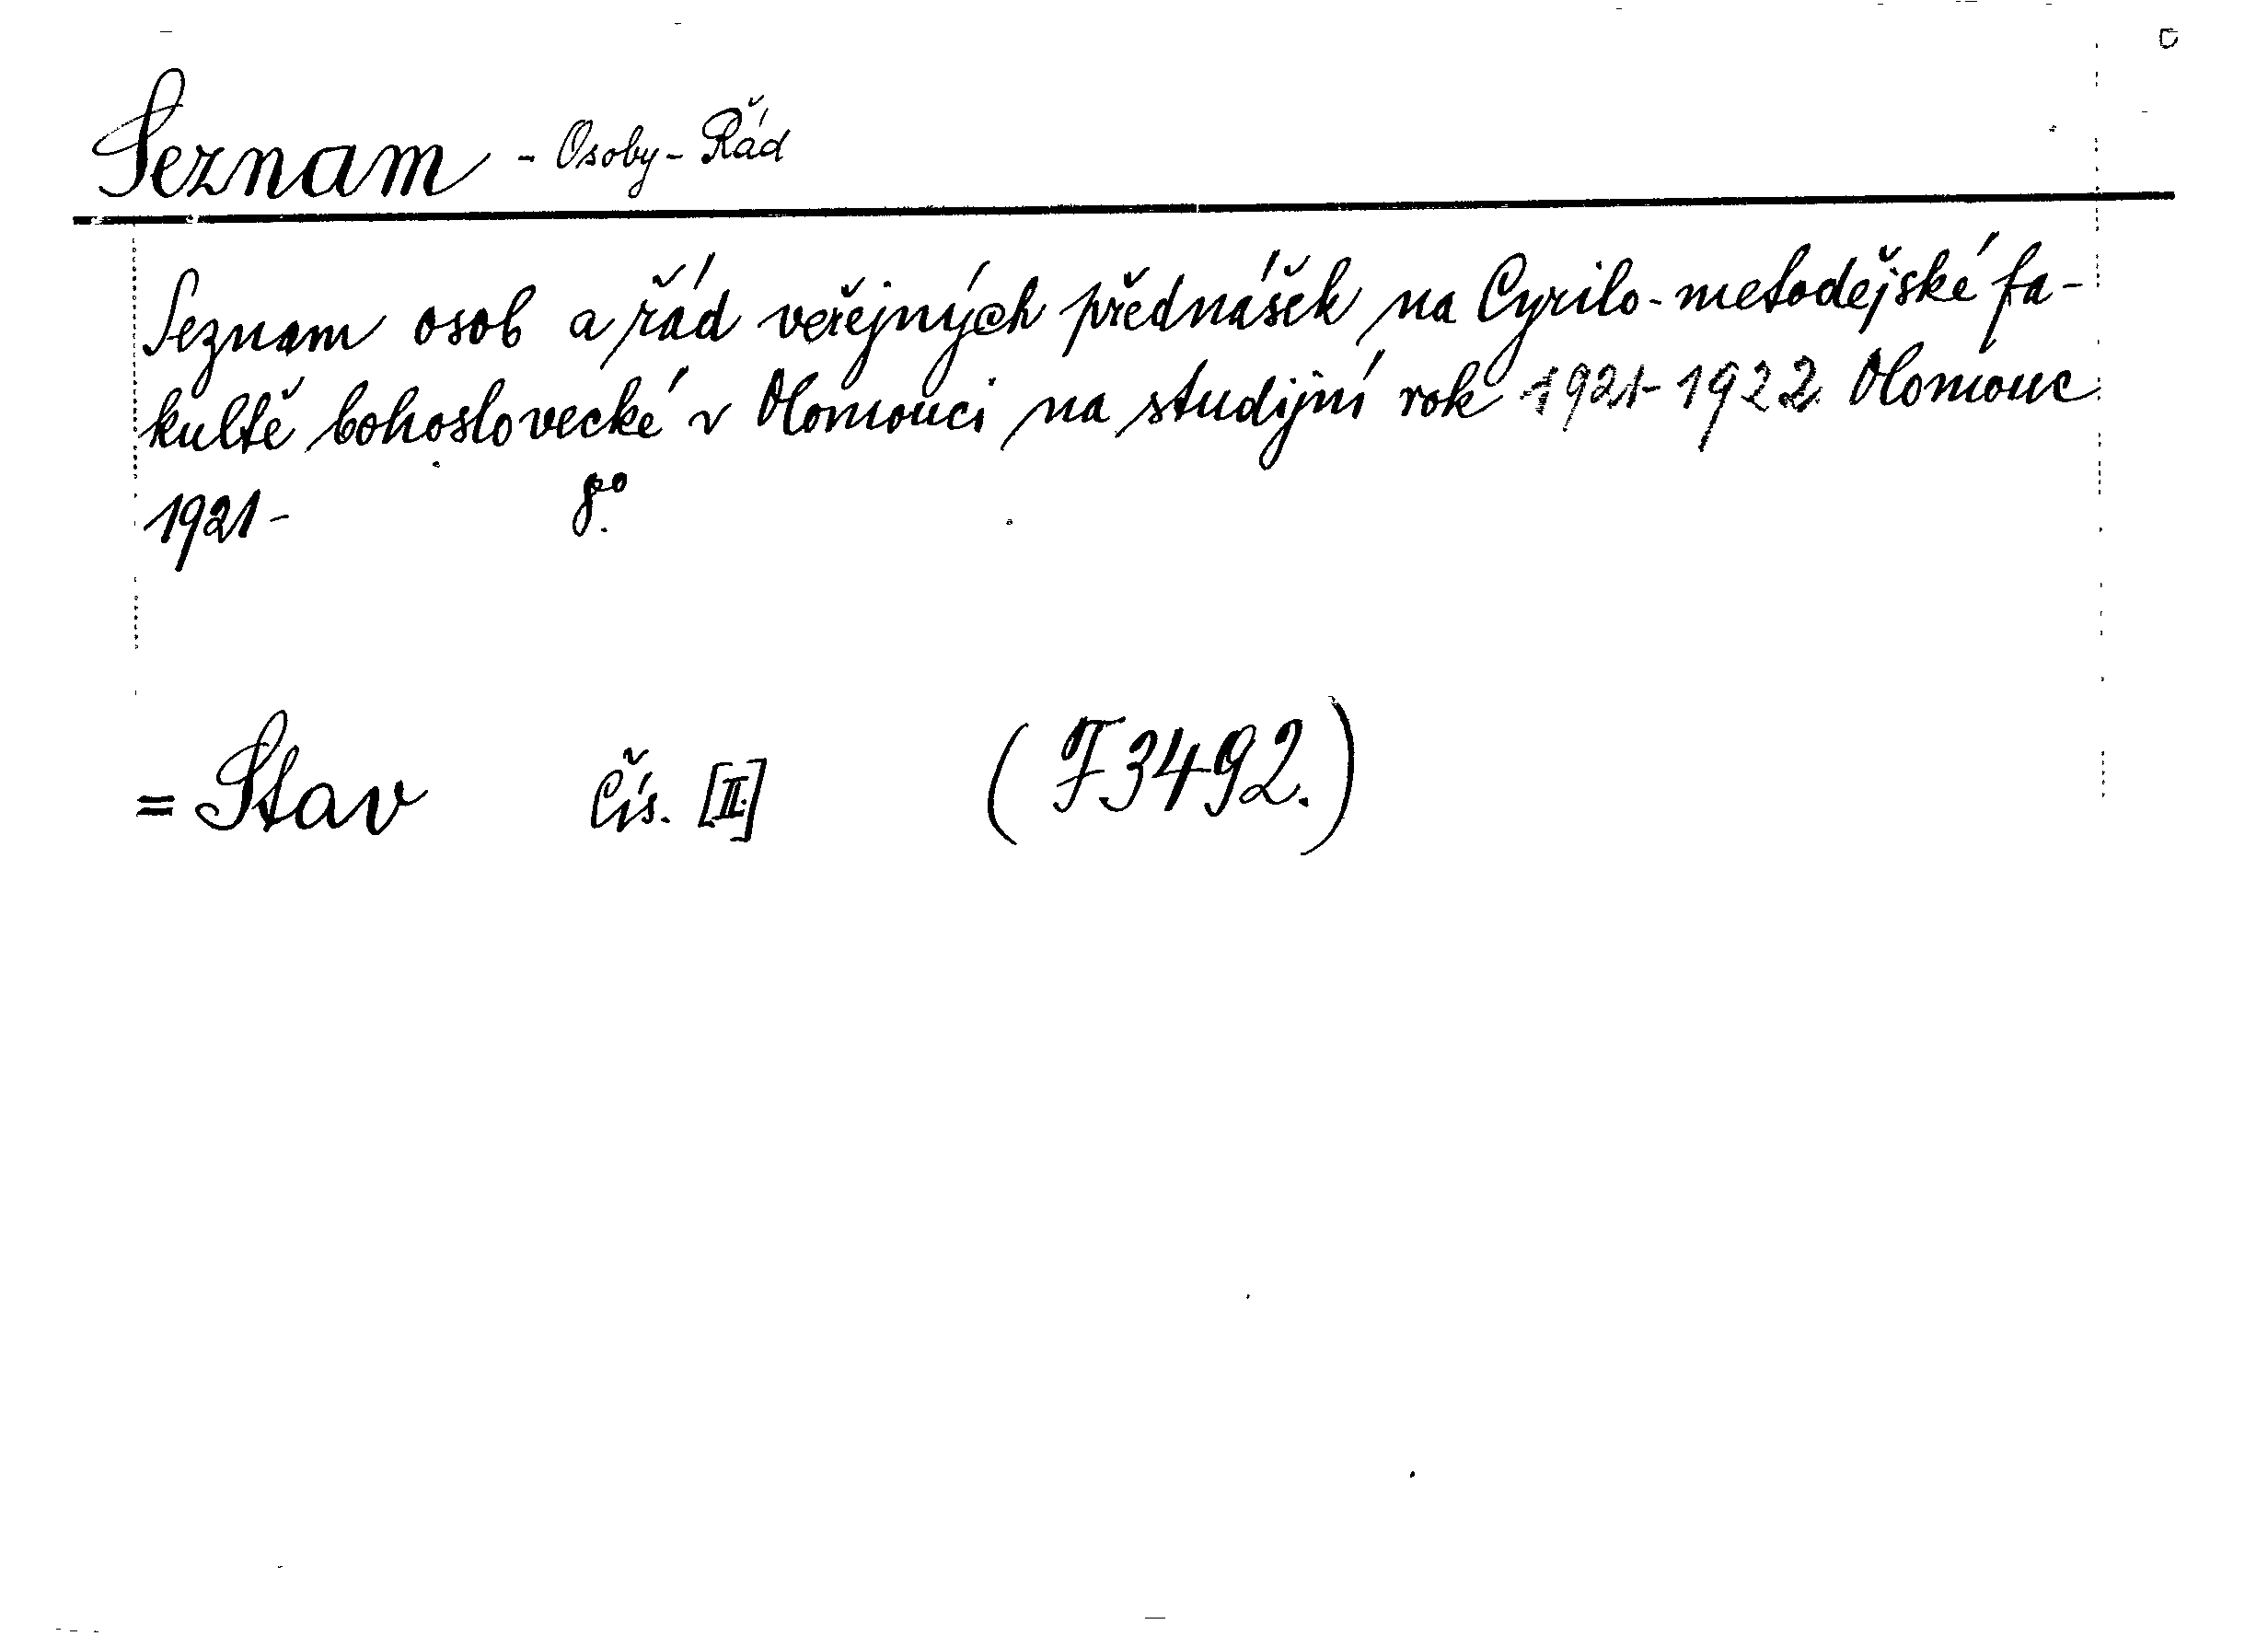 Seznam - Osoby - Řád
Seznam osob a řád veřejných přednášek na Cyrilo-metodějské fa-
kultě bohoslovecké v Olomouci na studijní rok 1921-1922 Olomouc
1921- 8°.
= Stav Čís. [II.] (F3492.)